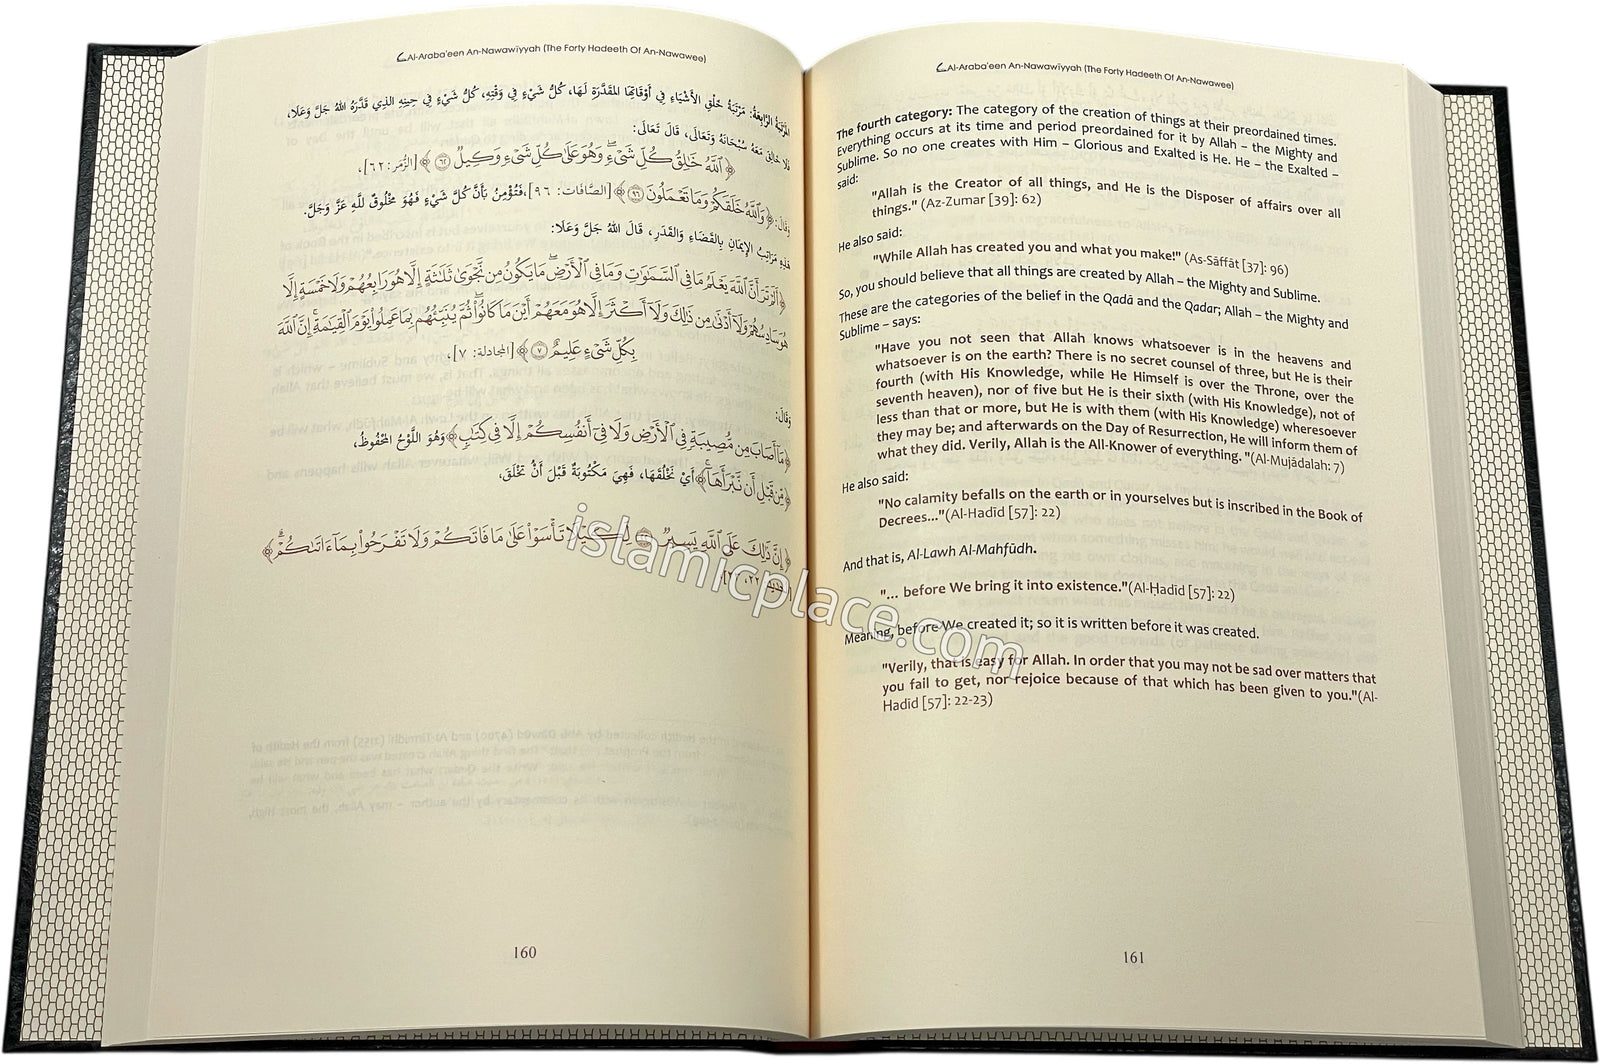 Al-Araba'een An-Nawawïyyah (The Forty Hadeeth Of An-Nawawee)
المَرْتَبَةُ الرَّابِعَةُ: مَرْتَبَةُ خَلْقِ الْأَشْيَاءِ فِي أَوْقَاتِهَا المُقَدَّرَةِ لَهَا، كُلُّ شَيْءٍ فِي وَقْتِهِ، كُلُّ شَيْءٍ فِي حِينِهِ الذِي قَدَّرَهُ اللهُ جَلَّ وَعَلَا،
فَلَا خَالِقَ مَعَهُ سُبْحَانَهُ وَتَعَالَى، قَالَ تَعَالَى:
﴿ٱللَّهُ خَٰلِقُ كُلِّ شَىْءٍ ۖ وَهُوَ عَلَىٰ كُلِّ شَىْءٍ وَكِيلٌ ٦٢﴾ [الزُّمَر: ٦٢]،
وَقَالَ: ﴿وَٱللَّهُ خَلَقَكُمْ وَمَا تَعْمَلُونَ ٩٦﴾ [الصَّافَات: ٩٦]، فَنُؤْمِنُ بِأَنَّ كُلَّ شَيْءٍ فَهُوَ مَخْلُوقٌ لِلَّهِ عَزَّ وَجَلَّ.
هَذِهِ مَرَاتِبُ الإِيمَانِ بِالقَضَاءِ وَالقَدَرِ، قَالَ اللهُ جَلَّ وَعَلَا:
﴿أَلَمْ تَرَ أَنَّ ٱللَّهَ يَعْلَمُ مَا فِى ٱلسَّمَٰوَٰتِ وَمَا فِى ٱلْأَرْضِ ۖ مَا يَكُونُ مِن نَّجْوَىٰ ثَلَٰثَةٍ إِلَّا هُوَ رَابِعُهُمْ وَلَا خَمْسَةٍ إِلَّا
هُوَ سَادِسُهُمْ وَلَآ أَدْنَىٰ مِن ذَٰلِكَ وَلَآ أَكْثَرَ إِلَّا هُوَ مَعَهُمْ أَيْنَ مَا كَانُوا۟ ۖ ثُمَّ يُنَبِّئُهُم بِمَا عَمِلُوا۟ يَوْمَ ٱلْقِيَٰمَةِ ۚ إِنَّ ٱللَّهَ
بِكُلِّ شَىْءٍ عَلِيمٌ ٧﴾ [المجادلة: ٧]،
وَقَالَ:
﴿مَآ أَصَابَ مِن مُّصِيبَةٍ فِى ٱلْأَرْضِ وَلَا فِىٓ أَنفُسِكُمْ إِلَّا فِى كِتَٰبٍ﴾ وَهُوَ اللَّوْحُ المَحْفُوظُ،
﴿مِّن قَبْلِ أَن نَّبْرَأَهَآ ۚ﴾ أَيْ نَخْلُقَهَا، فَهِيَ مَكْتُوبَةٌ قَبْلَ أَنْ تُخْلَقَ،
﴿إِنَّ ذَٰلِكَ عَلَى ٱللَّهِ يَسِيرٌ لِّكَيْلَا تَأْسَوْا۟ عَلَىٰ مَا فَاتَكُمْ وَلَا تَفْرَحُوا۟ بِمَآ ءَاتَىٰكُمْ ۗ﴾
160
Al-Araba'een An-Nawawïyyah (The Forty Hadeeth Of An-Nawawee)
The fourth category: The category of the creation of things at their preordained times.
Everything occurs at its time and period preordained for it by Allah – the Mighty and
Sublime. So no one creates with Him – Glorious and Exalted is He. He – the Exalted –
said:
"Allah is the Creator of all things, and He is the Disposer of affairs over all
things." (Az-Zumar [39]: 62)
He also said:
"While Allah has created you and what you make!" (As-Sāffāt [37]: 96)
So, you should believe that all things are created by Allah – the Mighty and Sublime.
These are the categories of the belief in the Qadā and the Qadar; Allah – the Mighty and
Sublime – says:
"Have you not seen that Allah knows whatsoever is in the heavens and
whatsoever is on the earth? There is no secret counsel of three, but He is their
fourth (with His Knowledge, while He Himself is over the Throne, over the
seventh heaven), nor of five but He is their sixth (with His Knowledge), not of
less than that or more, but He is with them (with His Knowledge) wheresoever
they may be; and afterwards on the Day of Resurrection, He will inform them of
what they did. Verily, Allah is the All-Knower of everything. "(Al-Mujādalah: 7)
He also said:
"No calamity befalls on the earth or in yourselves but is inscribed in the Book of
Decrees..."(Al-Hadīd [57]: 22)
And that is, Al-Lawh Al-Mahfūdh.
"... before We bring it into existence."(Al-Ḥadīd [57]: 22)
Meaning, before We created it; so it is written before it was created.
"Verily, that is easy for Allah. In order that you may not be sad over matters that
you fail to get, nor rejoice because of that which has been given to you."(Al-
Hadid [57]: 22-23)
161
islamicplace.com